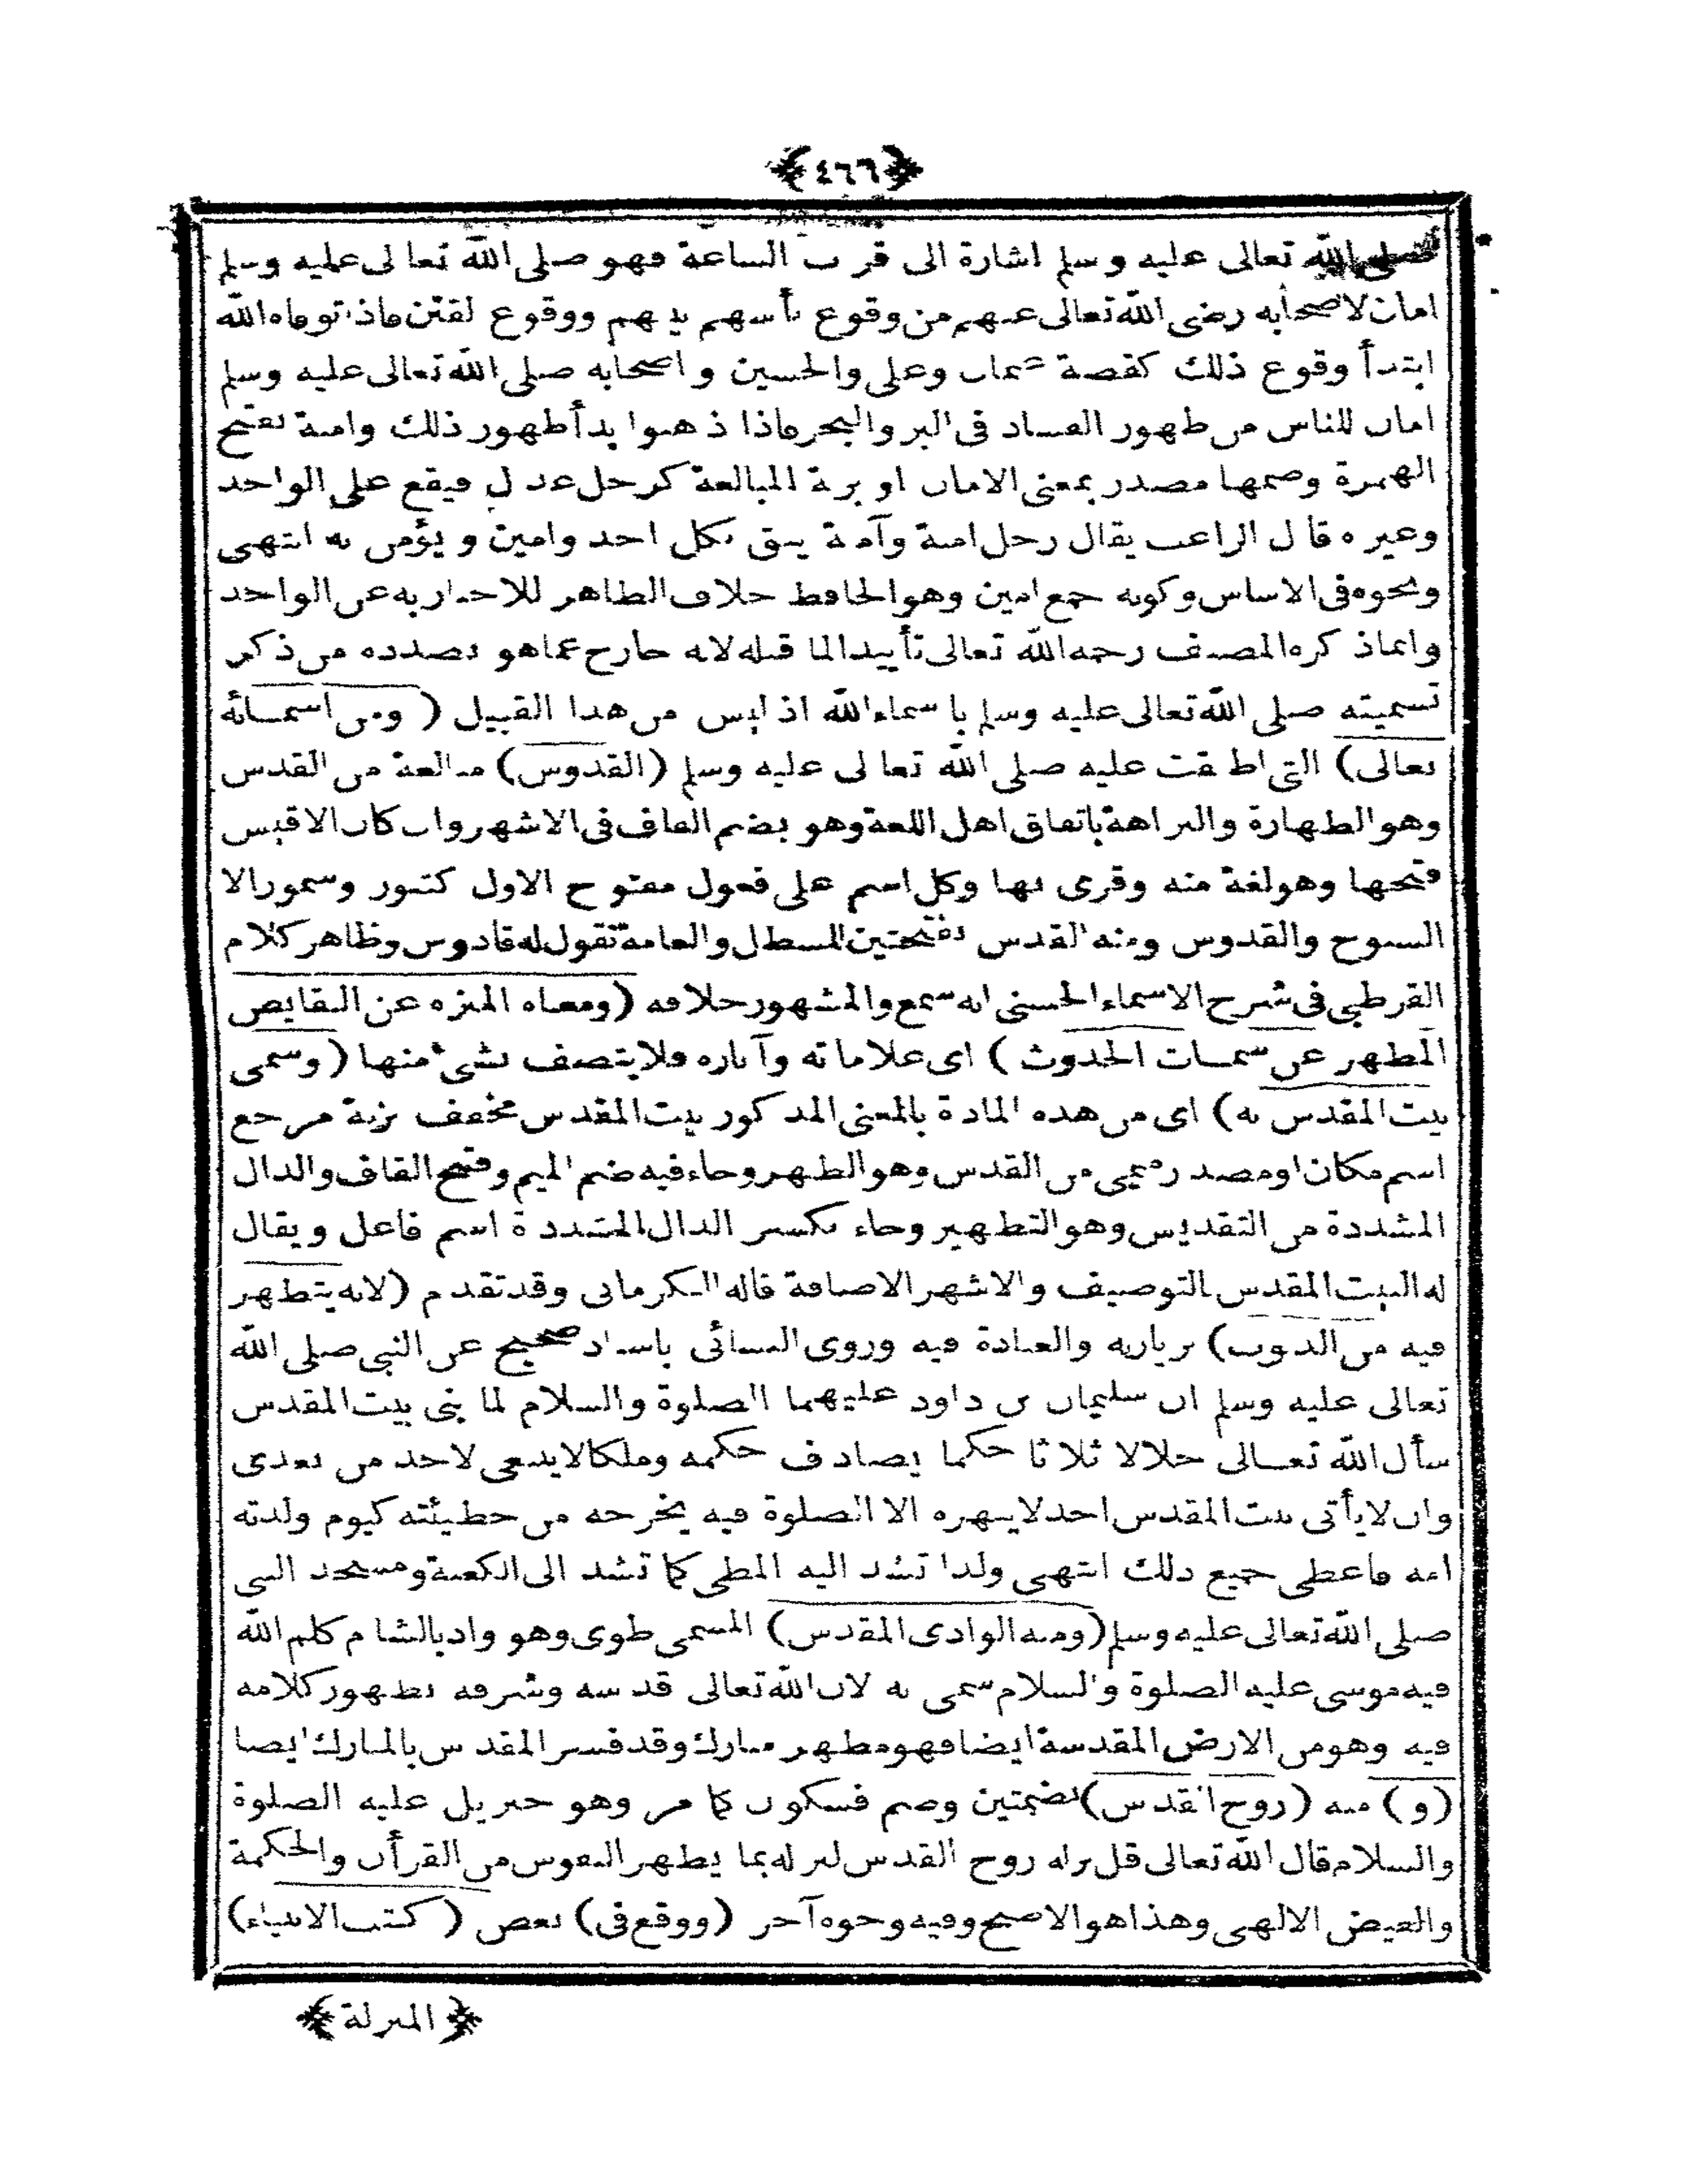 ﴿٤٦٦﴾
صلى الله تعالى عليه وسلم اشارة الى قرب الساعة فهو صلى الله تعالى عليه وسلم
امان لاصحابه رضى الله تعالى عنهم من وقوع بأسهم بينهم ووقوع الفتن فاذا توفاه الله
ابتدأ وقوع ذلك كقصة عثمان وعلى والحسين واصحابه صلى الله تعالى عليه وسلم
امان للناس من ظهور الفساد فى البر والبحر فاذا ذهبوا بدأ ظهور ذلك وامنة بفتح
الهمزة وضمها مصدر بمعنى الامان او بزنة المبالغة كرجل عدل فيقع على الواحد
وغيره قال الراغب يقال رجل امنة وآمنة يثق بكل احد وامين ويؤمن به انتهى
ونحوه فى الاساس وكونه جمع امين وهو الحافظ خلاف الظاهر للاخبار به عن الواحد
وانماذكره المصنف رحمه الله تعالى تأييدا لما قبله لانه خارج عما هو بصدده من ذكر
تسميته صلى الله تعالى عليه وسلم باسماء الله اذ ليس من هذا القبيل (ومن اسمائه
تعالى) التى اطلقت عليه صلى الله تعالى عليه وسلم (القدوس) مبالغة من القدس
وهو الطهارة والنزاهة باتفاق اهل اللغة وهو بضم القاف فى الاشهر وان كان الاقيس
فتحها وهو لغة منه وقرئ بها وكل اسم على فعول مفتوح الاول كتنور وسمور الا
السبوح والقدوس ومنه القدس بفتحتين للسطل والعامة تقول له قادوس وظاهر كلام
القرطبى فى شرح الاسماء الحسنى انه سمع والمشهور خلافه (ومعناه المنزه عن النقايص
المطهر عن سمات الحدوث) اى علاماته وآثاره فلا يتصف بشئ منها (وسمى
بيت المقدس به) اى من هذه المادة بالمعنى المذكور بيت المقدس مخفف بزنة مرجع
اسم مكان او مصدر ميمى من القدس وهو الطهر وجاء فيه ضم الميم وفتح القاف والدال
المشددة من التقديس وهو التطهير وجاء بكسر الدال المشددة اسم فاعل ويقال
له البيت المقدس بالتوصيف والاشهر الاضافة قاله الكرمانى وقد تقدم (لانه يتطهر
فيه من الذنوب) بزيارته والعبادة فيه وروى النسائى باسناد صحيح عن النبى صلى الله
تعالى عليه وسلم ان سليمان بن داود عليهما الصلوة والسلام لما بنى بيت المقدس
سأل الله تعالى خلالا ثلاثا حكما يصادف حكمه وملكا لا ينبغى لاحد من بعدى
وان لا يأتى بيت المقدس احد لا ينهزه الا الصلوة فيه يخرجه من خطيئته كيوم ولدته
امه فاعطى جميع ذلك انتهى ولذا تشد اليه المطى كما تشد الى الكعبة ومسجد النبى
صلى الله تعالى عليه وسلم (ومنه الوادى المقدس) المسمى طوى وهو واد بالشام كلم الله
فيه موسى عليه الصلوة والسلام سمى به لان الله تعالى قدسه وشرفه بظهور كلامه
فيه وهو من الارض المقدسة ايضا فهو مطهر مبارك وقد فسر المقدس بالمبارك ايضا
(و) منه (روح القدس) بضمتين وضم فسكون كما مر وهو جبريل عليه الصلوة
والسلام قال الله تعالى قل نزله روح القدس لنزوله بما يطهر النفوس من القرأن والحكمة
والفيض الالهى وهذا هو الاصح وفيه وجوه آخر (ووقع فى) بعض (كتب الانبياء)
﴿المنزلة﴾